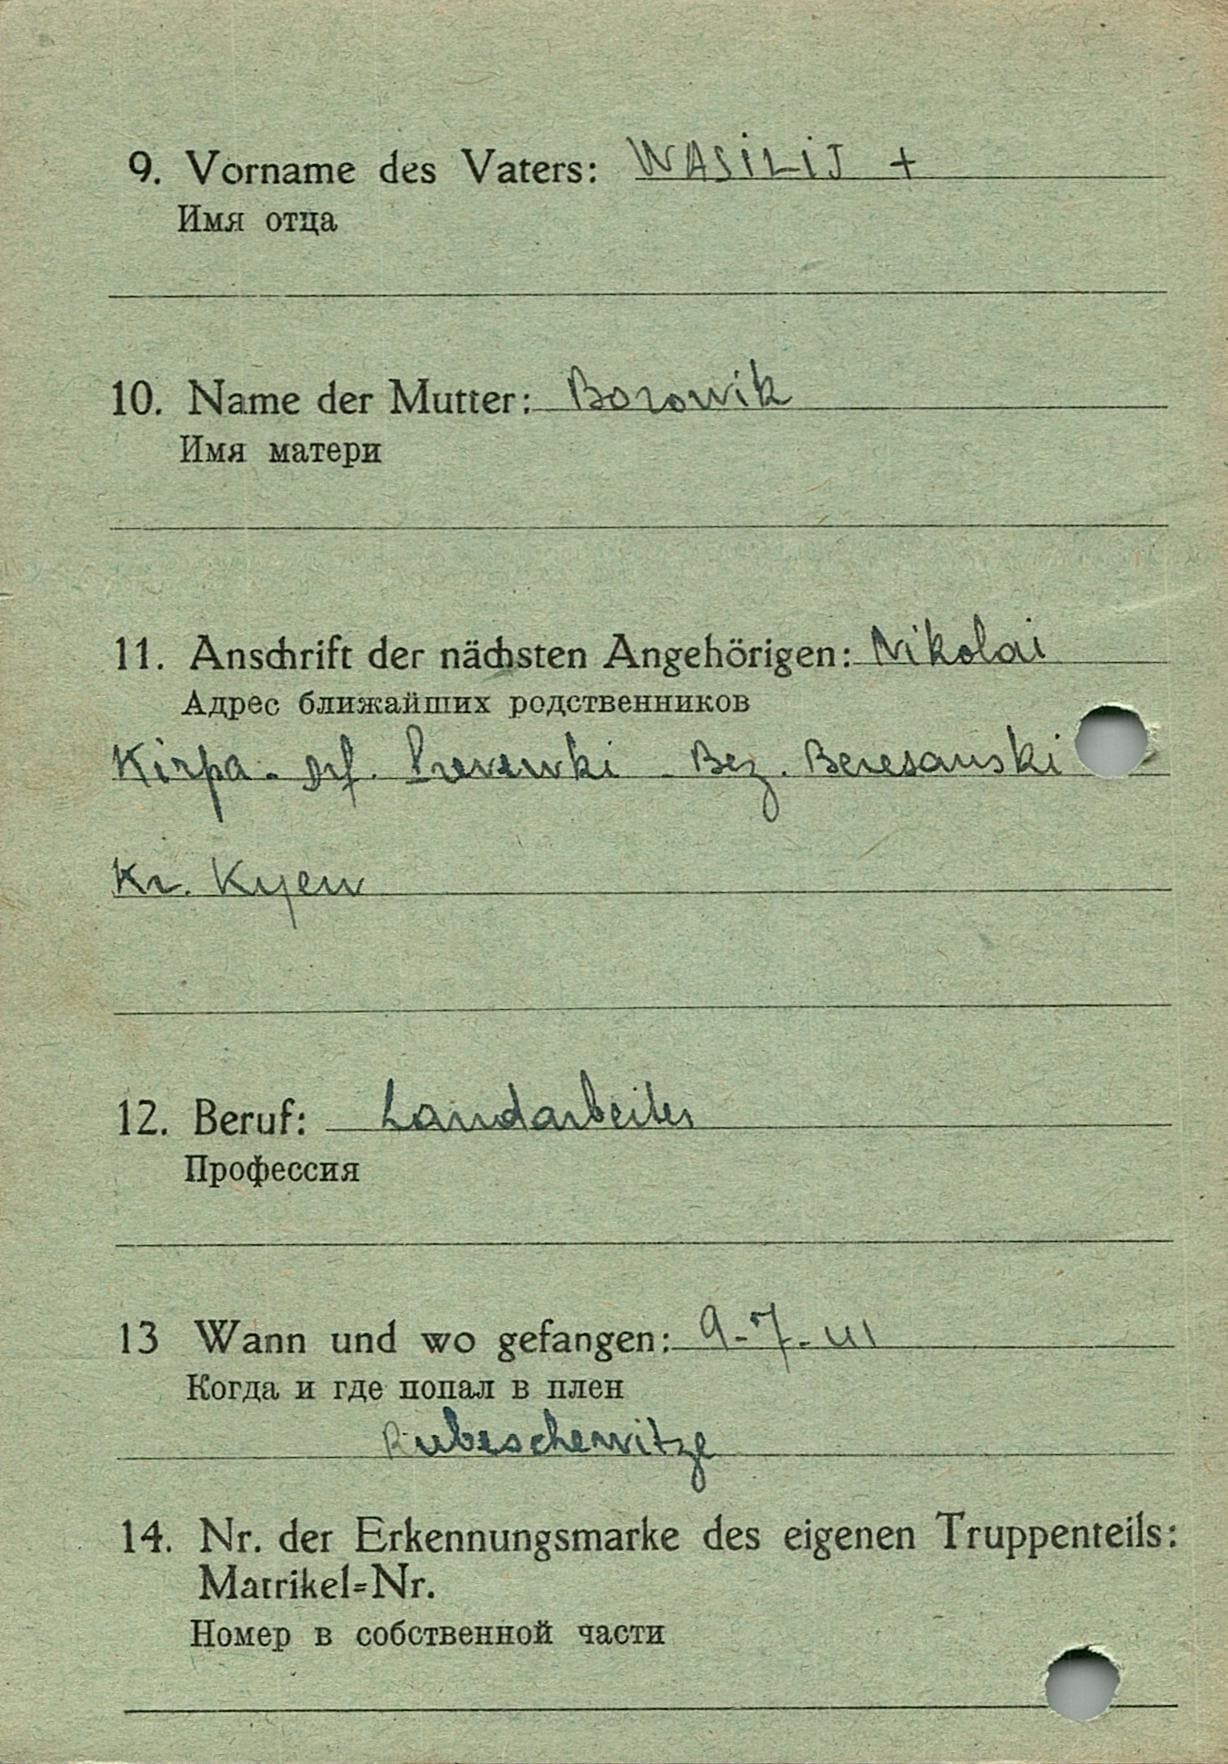 9. Vorname des Vaters: WASILIJ +
Имя отца
10. Name der Mutter: Borowik
Имя матери
11. Anschrift der nächsten Angehörigen: Nikolai
Адрес ближайших родственников
Kirpa - Bez. Beresanski
Kr. Kyew
12. Beruf: Landarbeiter
Профессия
13 Wann und wo gefangen: 9-7-41
Когда и где попал в плен
Rubeschewitze
14. Nr. der Erkennungsmarke des eigenen Truppenteils:
Matrikel=Nr.
Номер в собственной части